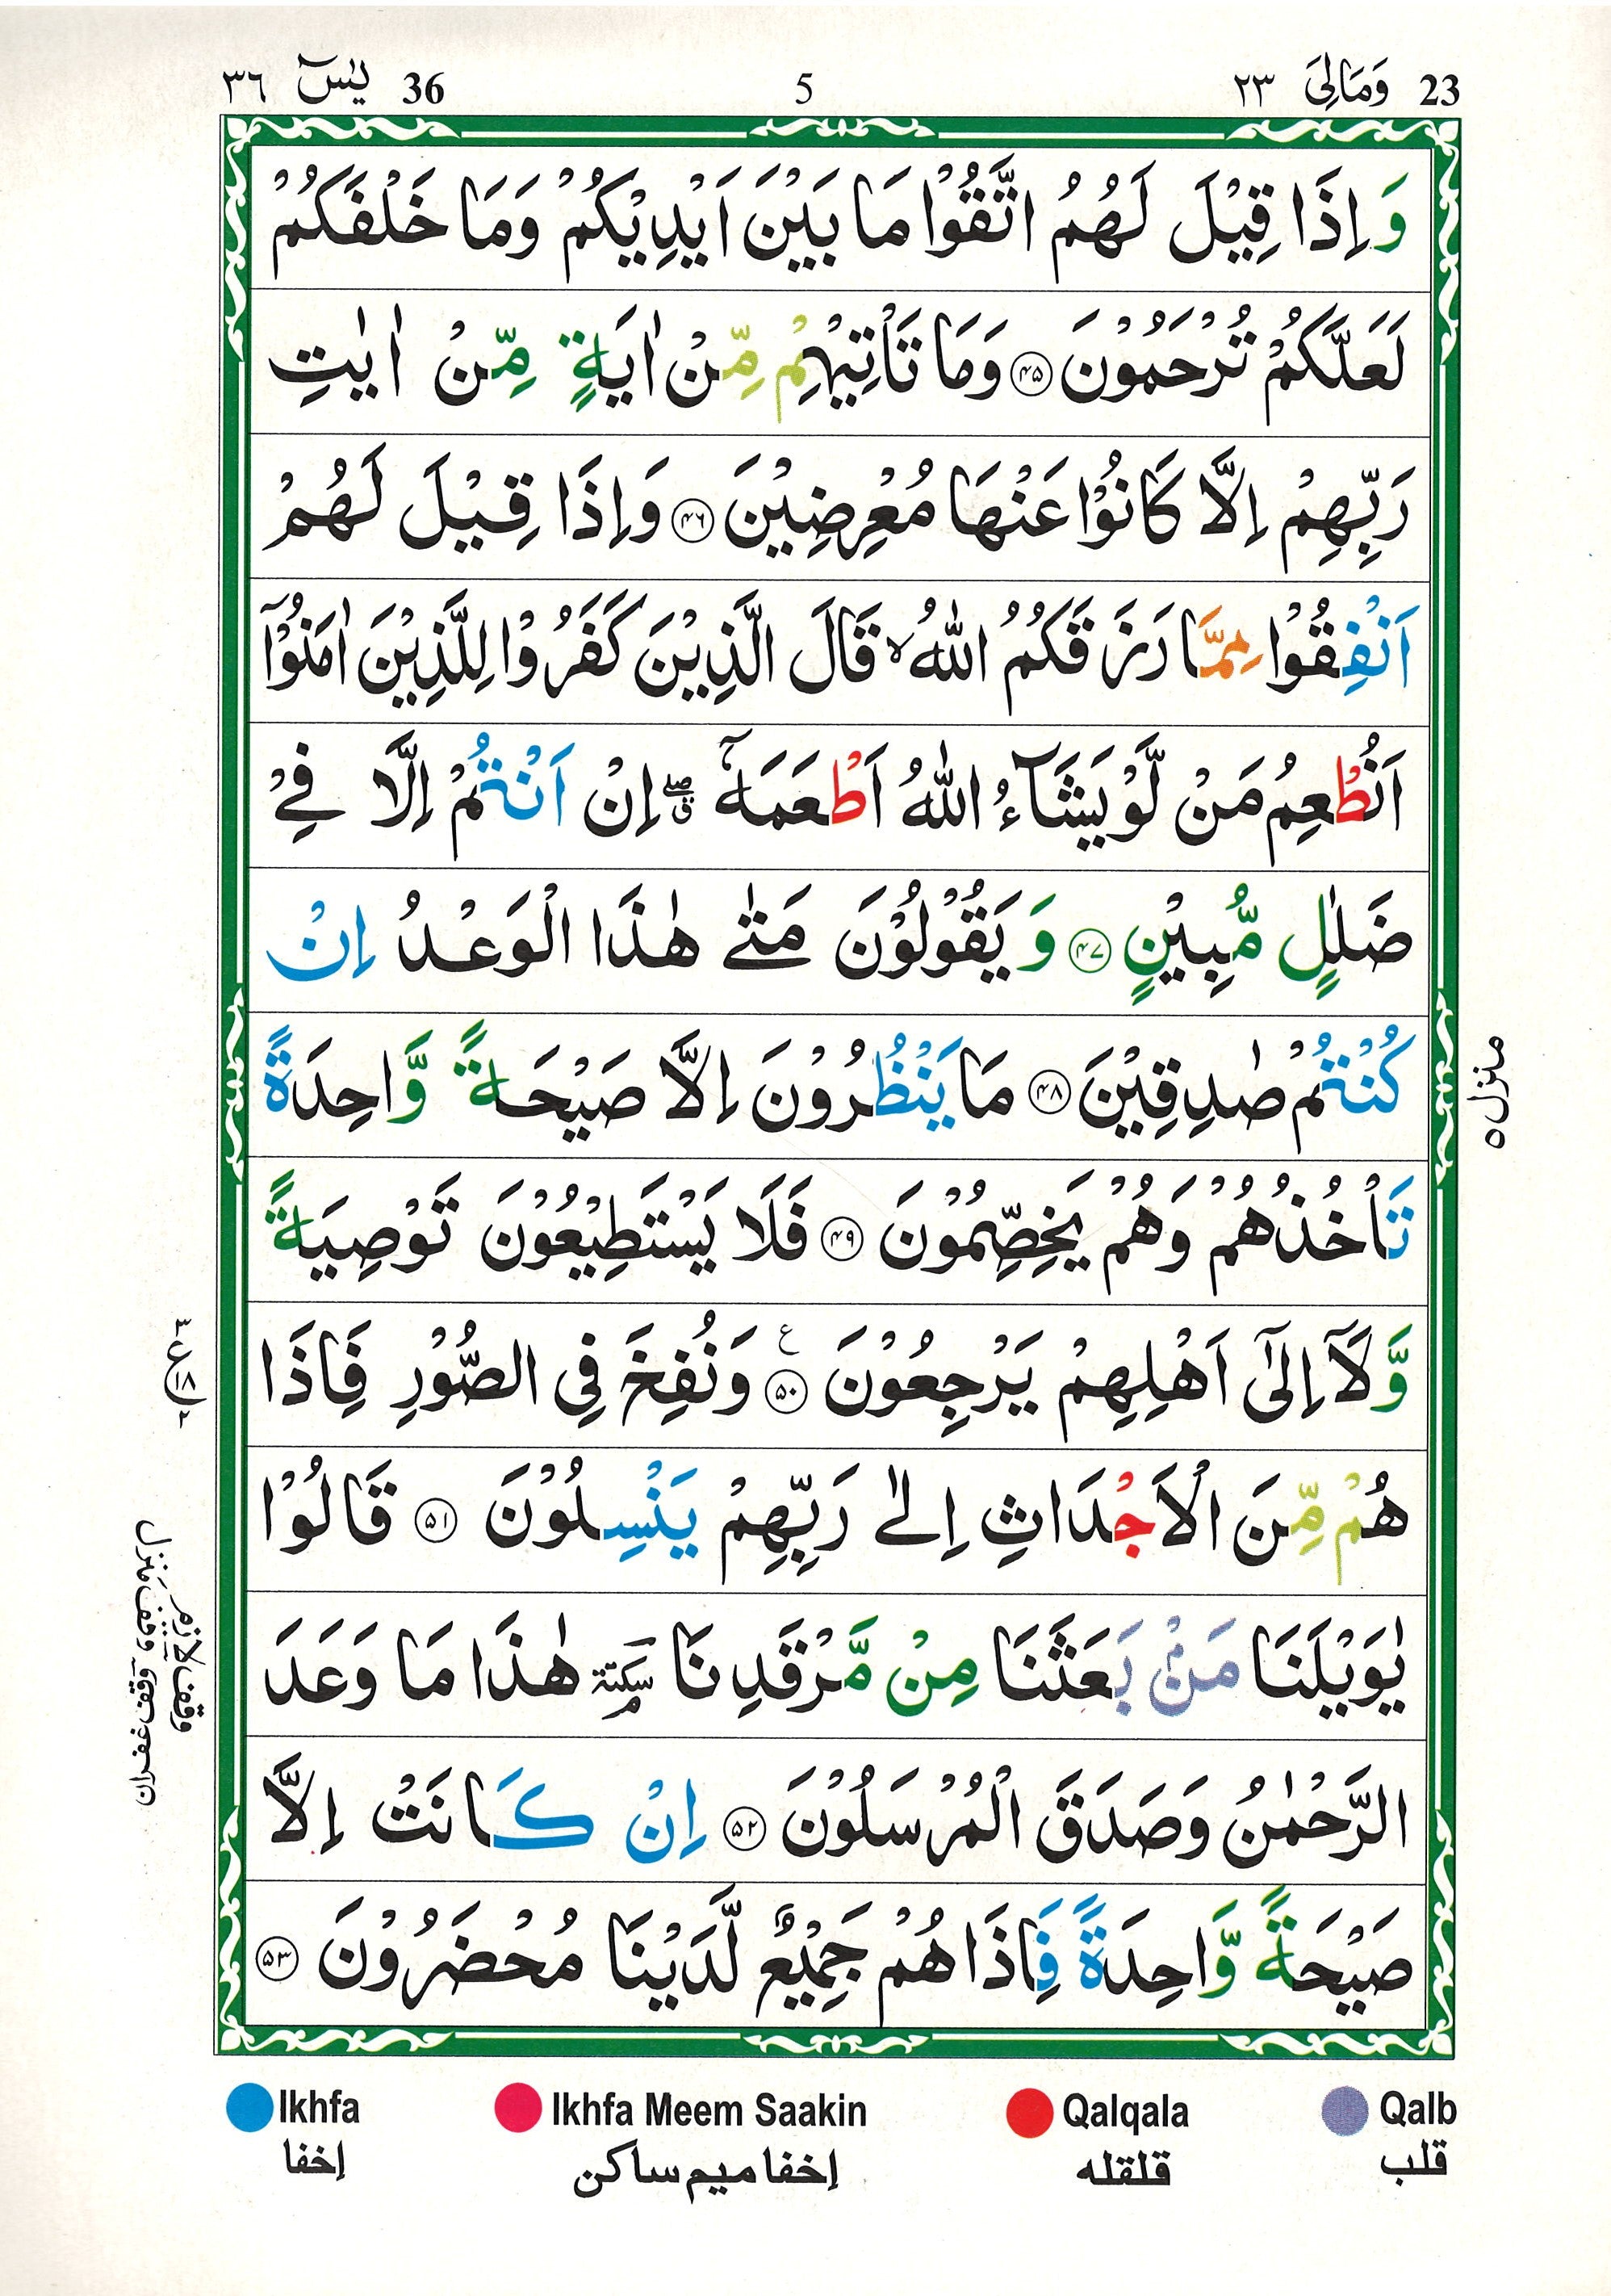 23 وَمَالِىَ ٢٣
5
36 يٰسٓ ٣٦
وَ اِذَا قِيْلَ لَهُمُ اتَّقُوْا مَا بَيْنَ اَيْدِيْكُمْ وَمَا خَلْفَكُمْ
لَعَلَّكُمْ تُرْحَمُوْنَ ۴۵ وَمَا تَاْتِيْهِمْ مِّنْ اٰيَةٍ مِّنْ اٰيٰتِ
رَبِّهِمْ اِلَّا كَانُوْا عَنْهَا مُعْرِضِيْنَ ۴۶ وَاِذَا قِيْلَ لَهُمْ
اَنْفِقُوْا مِمَّا رَزَقَكُمُ اللّٰهُ ۙ قَالَ الَّذِيْنَ كَفَرُوْا لِلَّذِيْنَ اٰمَنُوْٓا
اَنُطْعِمُ مَنْ لَّوْ يَشَآءُ اللّٰهُ اَطْعَمَهٗٓ ۖ اِنْ اَنْتُمْ اِلَّا فِيْ
ضَلٰلٍ مُّبِيْنٍ ۴۷ وَ يَقُوْلُوْنَ مَتٰى هٰذَا الْوَعْدُ اِنْ
كُنْتُمْ صٰدِقِيْنَ ۴۸ مَا يَنْظُرُوْنَ اِلَّا صَيْحَةً وَّاحِدَةً
تَاْخُذُهُمْ وَهُمْ يَخِصِّمُوْنَ ۴۹ فَلَا يَسْتَطِيْعُوْنَ تَوْصِيَةً
وَّلَآ اِلٰٓى اَهْلِهِمْ يَرْجِعُوْنَ ۵۰ ع وَنُفِخَ فِى الصُّوْرِ فَاِذَا
هُمْ مِّنَ الْاَجْدَاثِ اِلٰى رَبِّهِمْ يَنْسِلُوْنَ ۵۱ قَالُوْا
يٰوَيْلَنَا مَنْۢ بَعَثَنَا مِنْ مَّرْقَدِنَا سكتة هٰذَا مَا وَعَدَ
الرَّحْمٰنُ وَصَدَقَ الْمُرْسَلُوْنَ ۵۲ اِنْ كَانَتْ اِلَّا
صَيْحَةً وَّاحِدَةً فَاِذَا هُمْ جَمِيْعٌ لَّدَيْنَا مُحْضَرُوْنَ ۵۳
منزل ۵
ع ۱۸
وقف لازم
وقف منزل
وقف غفران
Ikhfa
إخفا
Ikhfa Meem Saakin
إخفا ميم ساكن
Qalqala
قلقله
Qalb
قلب